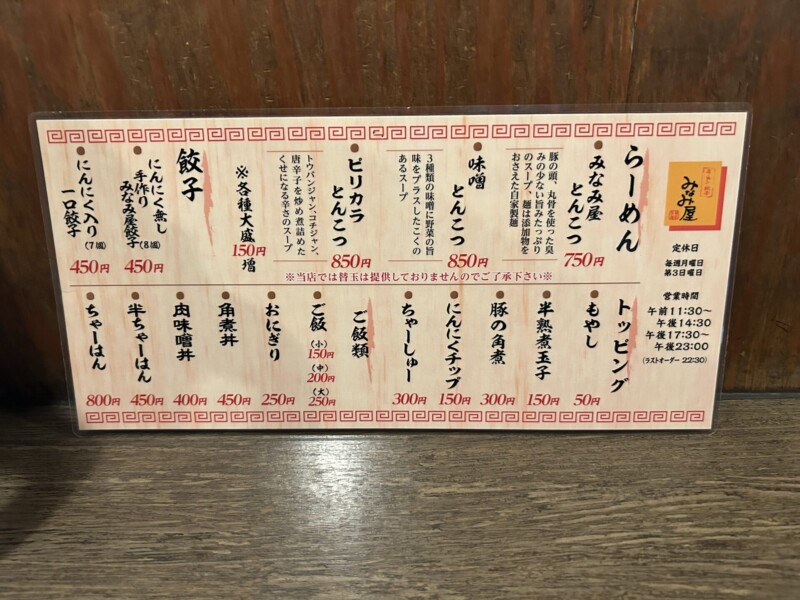 みなみ屋
定休日
毎週月曜日
第3日曜日
営業時間
午前11:30～
午後14:30
午後17:30～
午後23:00
(ラストオーダー 22:30)
らーめん
みなみ屋
とんこつ
豚の頭、丸骨を使った臭
みの少ない旨みたっぷり
のスープ、麺は添加物を
おさえた自家製麺
750円
味噌
とんこつ
3種類の味噌に野菜の旨
味をプラスしたこくの
あるスープ
850円
ピリカラ
とんこつ
トウバンジャン、コチジャン、
唐辛子を炒め煮詰めた
くせになる辛さのスープ
850円
※各種大盛
150円増
餃子
にんにく無し
手作り
みなみ屋餃子(8個)
450円
にんにく入り
一口餃子(7個)
450円
※当店では替玉は提供しておりませんのでご了承下さい※
トッピング
もやし
50円
半熟煮玉子
150円
豚の角煮
300円
にんにくチップ
150円
ちゃーしゅー
300円
ご飯類
ご飯
(小)
150円
(中)
200円
(大)
250円
おにぎり
250円
角煮丼
450円
肉味噌丼
400円
半ちゃーはん
450円
ちゃーはん
800円